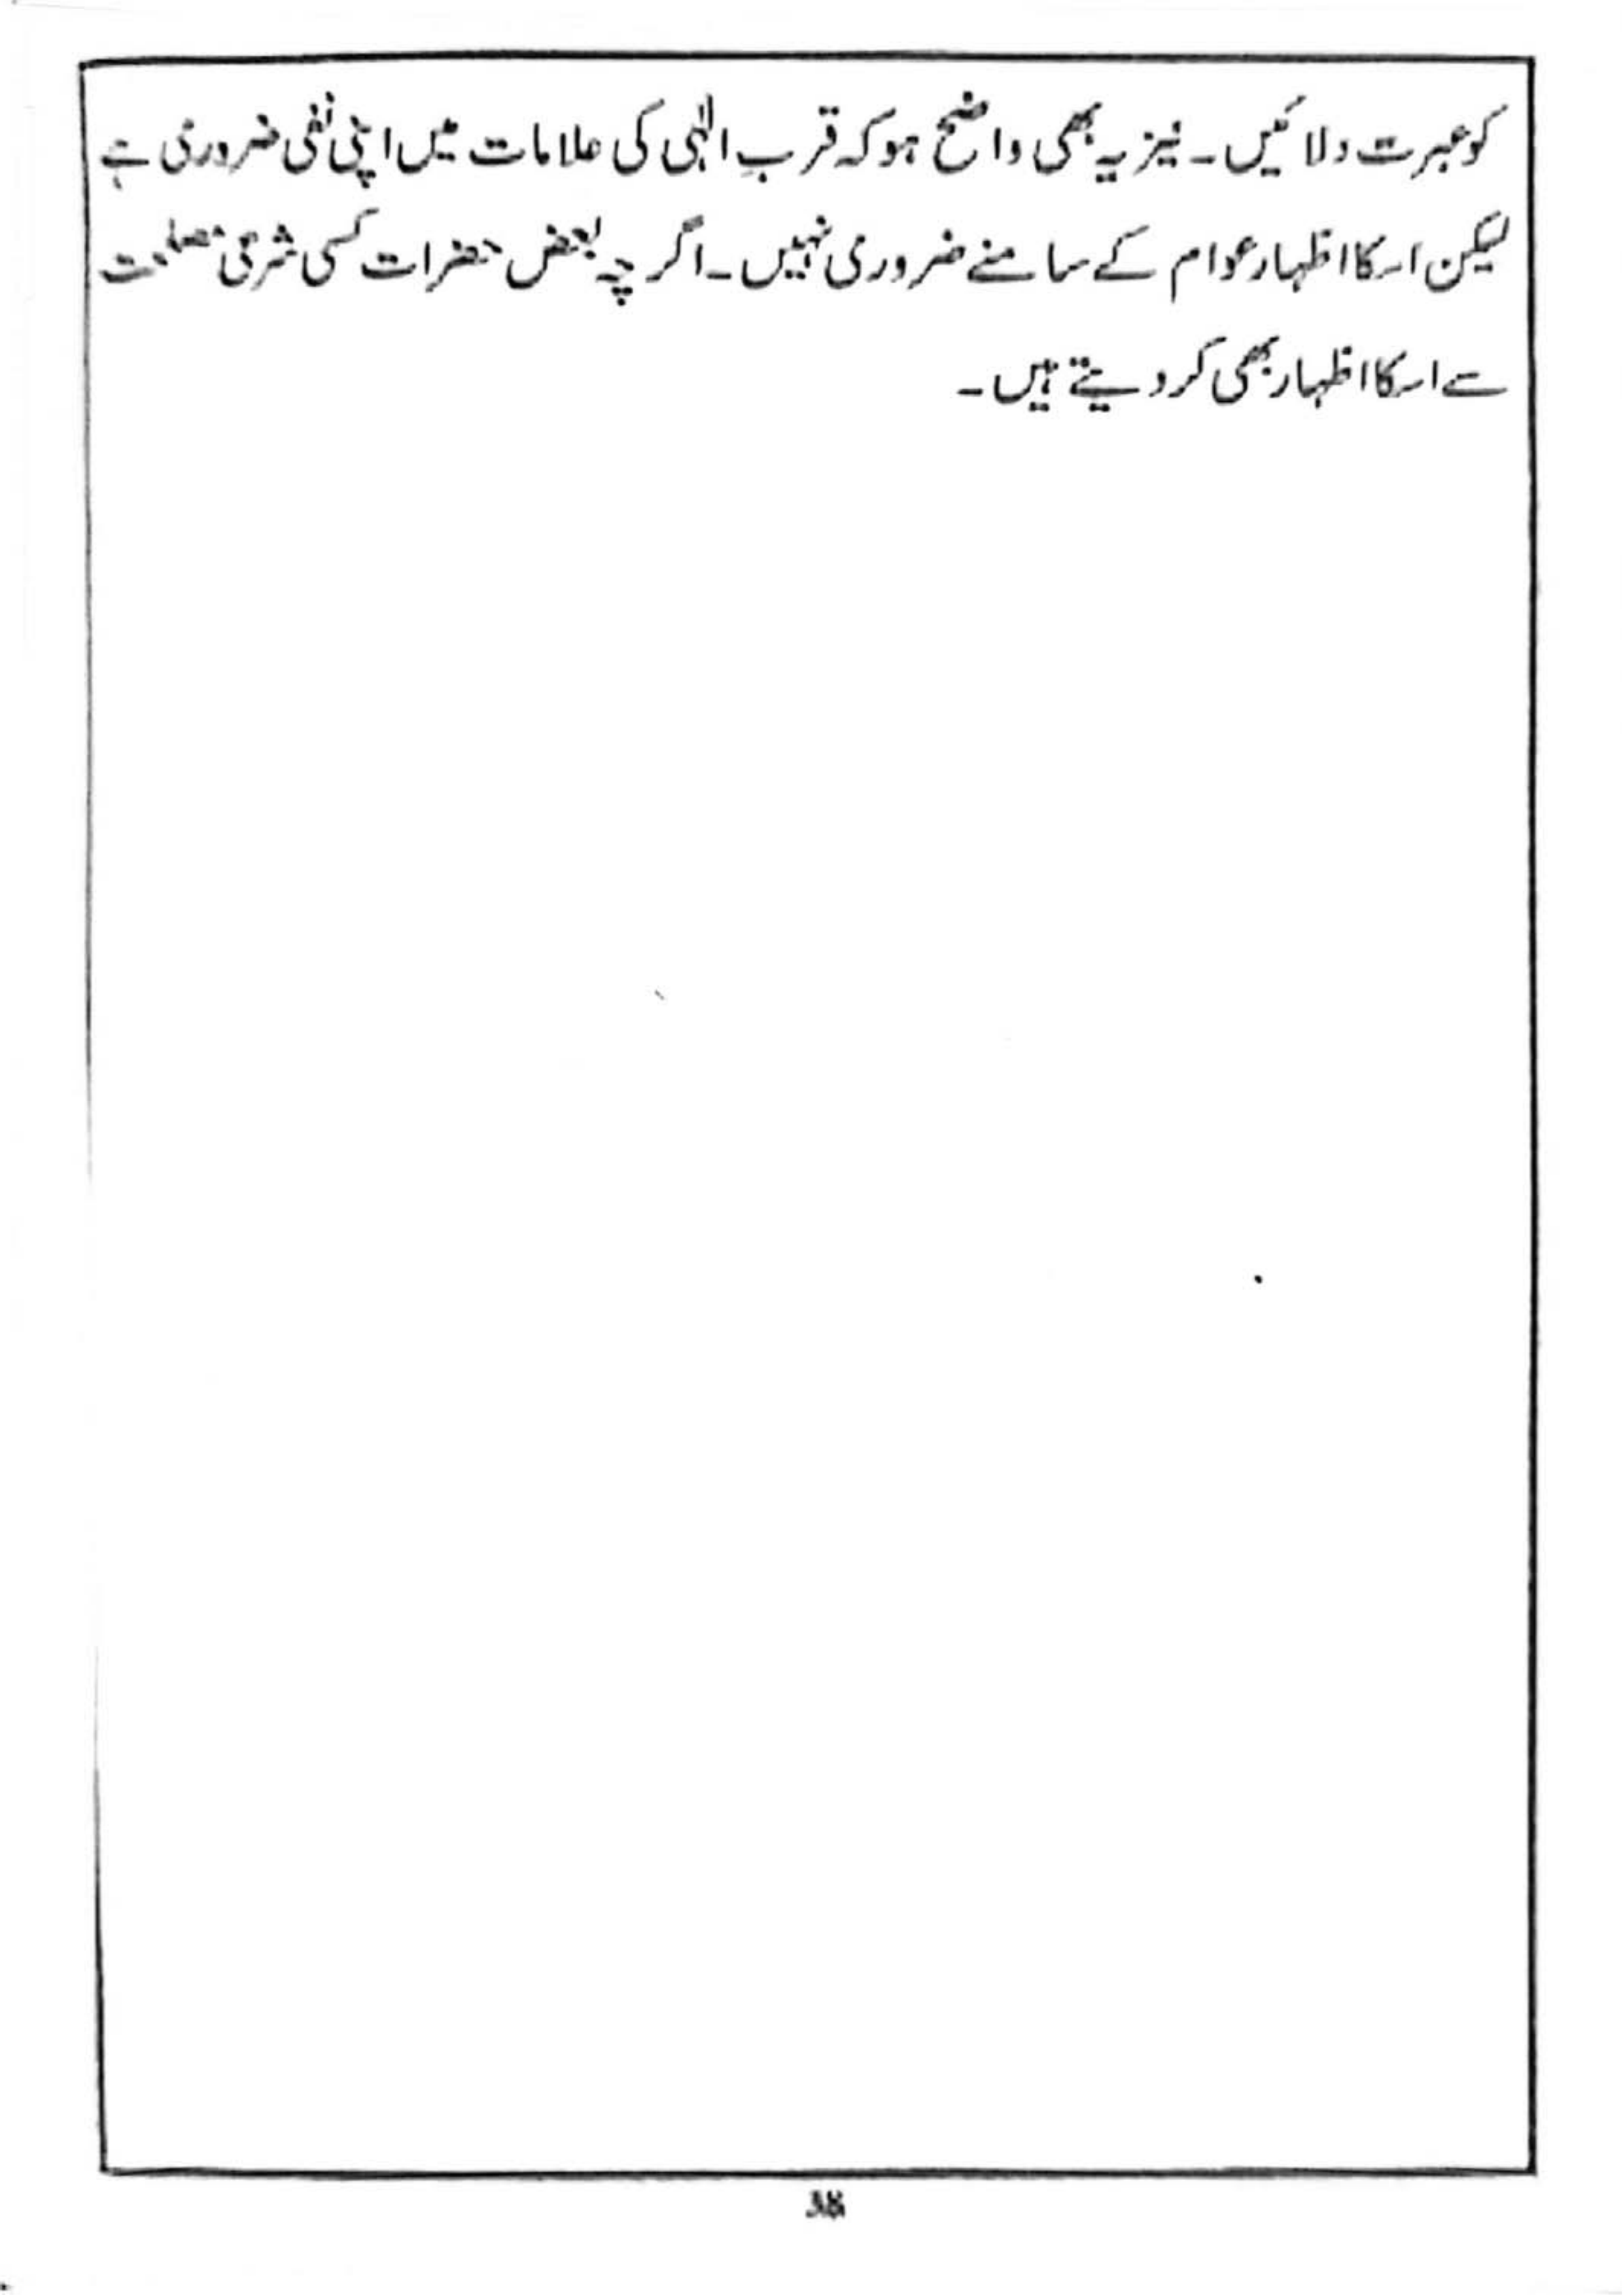 کو عبرت دلائیں۔ نیز یہ بھی واضح ہو کہ قربِ الٰہی کی علامات میں اپنی نفی ضروری ہے
لیکن اسکا اظہار عوام کے سامنے ضروری نہیں۔ اگر چہ بعض حضرات کسی شرعی مصلحت
سے اسکا اظہار بھی کر دیتے ہیں۔
38